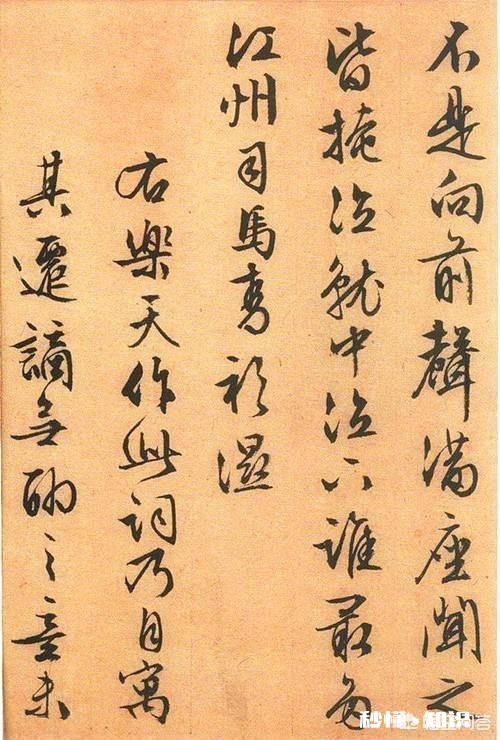 不是向前聲滿座聞之
皆掩泣就中泣下誰最多
江州司馬青衫濕
右樂天作此詞乃自寓
其遷謫無聊之意未
秒懂 知识